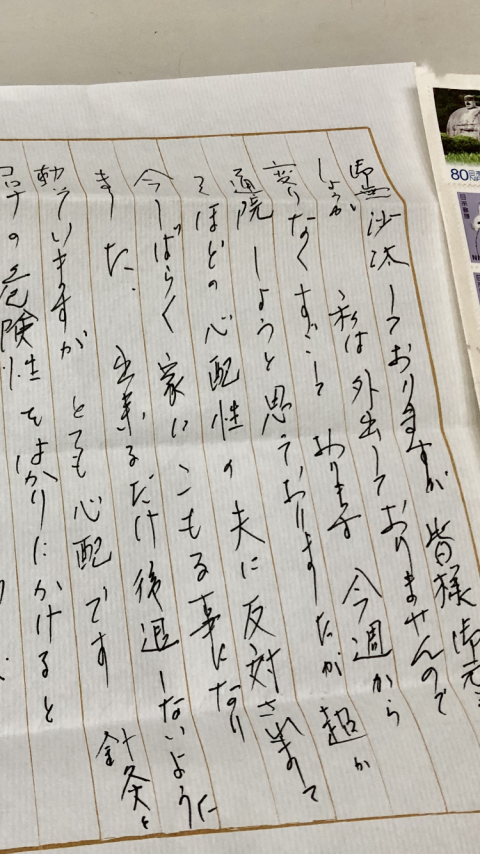 御無沙汰しておりますが 皆様 御元
しょうか 私は 外出しておりませんので
変りなくすごして おります 今週から
通院しようと思っておりましたが 超が
つくほどの心配性の夫に反対されまして
今しばらく 家にこもる事になり
ました、 出来るだけ後退しないように
動いていますが とても心配です 針灸と
の危険性をはかりにかけると
80
日本郵便